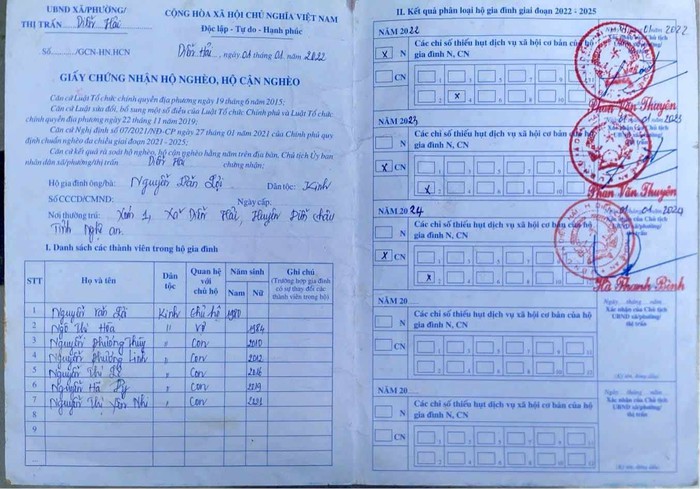 UBND XÃ/PHƯỜNG/
THỊ TRẤN Diễn Hải
CỘNG HÒA XÃ HỘI CHỦ NGHĨA VIỆT NAM
Độc lập - Tự do - Hạnh phúc
Số......../GCN-HN.HCN
Diễn Hải, ngày 01 tháng 01 năm 2022
GIẤY CHỨNG NHẬN HỘ NGHÈO, HỘ CẬN NGHÈO
Căn cứ Luật Tổ chức chính quyền địa phương ngày 19 tháng 6 năm 2015;
Căn cứ Luật sửa đổi, bổ sung một số điều của Luật Tổ chức Chính phủ và Luật Tổ chức
chính quyền địa phương ngày 22 tháng 11 năm 2019;
Căn cứ Nghị định số 07/2021/NĐ-CP ngày 27 tháng 01 năm 2021 của Chính phủ quy
định chuẩn nghèo đa chiều giai đoạn 2021 - 2025;
Căn cứ kết quả rà soát hộ nghèo, hộ cận nghèo hằng năm trên địa bàn, Chủ tịch Ủy ban
nhân dân xã/phường/thị trấn Diễn Hải chứng nhận:
Hộ gia đình ông/bà: Nguyễn Văn Dân tộc: Kinh
Số CCCD/CMND: Ngày cấp:
Nơi thường trú: Xóm 1, Xã Diễn Hải, Huyện Diễn Châu
Tỉnh Nghệ An.
I. Danh sách các thành viên trong hộ gia đình
STT Họ và tên Dân tộc Quan hệ với chủ hộ Năm sinh Nam Nữ Ghi chú (Trường hợp gia đình có sự thay đổi các thành viên trong hộ)
1 Nguyễn Văn Kinh Chủ hộ 1980
2 Ngô Thị Hóa " Vợ 1984
3 Nguyễn Phương Thùy " Con 2010
4 Nguyễn Phương Linh " Con 2012
5 Nguyễn Thị " Con 2016
6 Nguyễn Hà " Con 2019
7 Nguyễn Thị Yến Nhi " Con 2021
8
9
...
II. Kết quả phân loại hộ gia đình giai đoạn 2022 - 2025
NĂM 2022
01/2022
x N Các chỉ số thiếu hụt dịch vụ xã hội cơ bản của hộ
gia đình N, CN
CN
x
Phan Văn Thuyên
NĂM 2023
N Các chỉ số thiếu hụt dịch vụ xã hội cơ bản của hộ
gia đình N, CN
x CN
x
Phan Văn Thuyên
NĂM 2024
01 tháng 01 năm 2024
N Các chỉ số thiếu hụt dịch vụ xã hội cơ bản của hộ
gia đình N, CN
x CN
x
Hà Thanh Bình
NĂM 20
Ngày tháng năm
N Các chỉ số thiếu hụt dịch vụ xã hội cơ bản của hộ
gia đình N, CN
Xác nhận của Chủ tịch
UBND xã/phường/
thị trấn
CN
(Ký tên, đóng dấu)
NĂM 20
Ngày tháng năm
N Các chỉ số thiếu hụt dịch vụ xã hội cơ bản của hộ
gia đình N, CN
Xác nhận của Chủ tịch
UBND xã/phường/
thị trấn
CN
(Ký tên, đóng dấu)